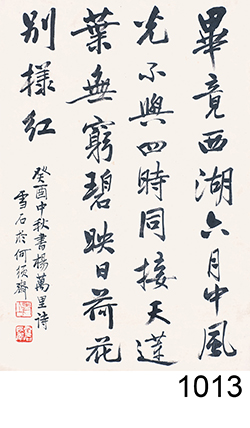 畢竟西湖六月中風
光不與四時同接天蓮
葉無窮碧映日荷花
別樣紅
癸酉中秋書楊萬里詩
雪石於何須齋
1013